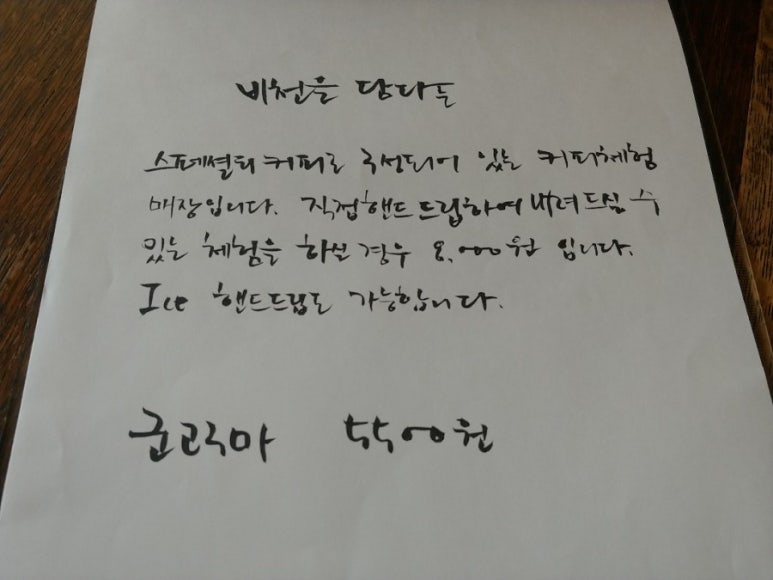 비천을 담다는
스페셜티 커피로 구성되어 있는 커피체험
매장입니다. 직접핸드드립하여 내려드실 수
있는 체험을 하실 경우 8,000원 입니다.
Ice 핸드드립도 가능합니다.
군고구마 5500원